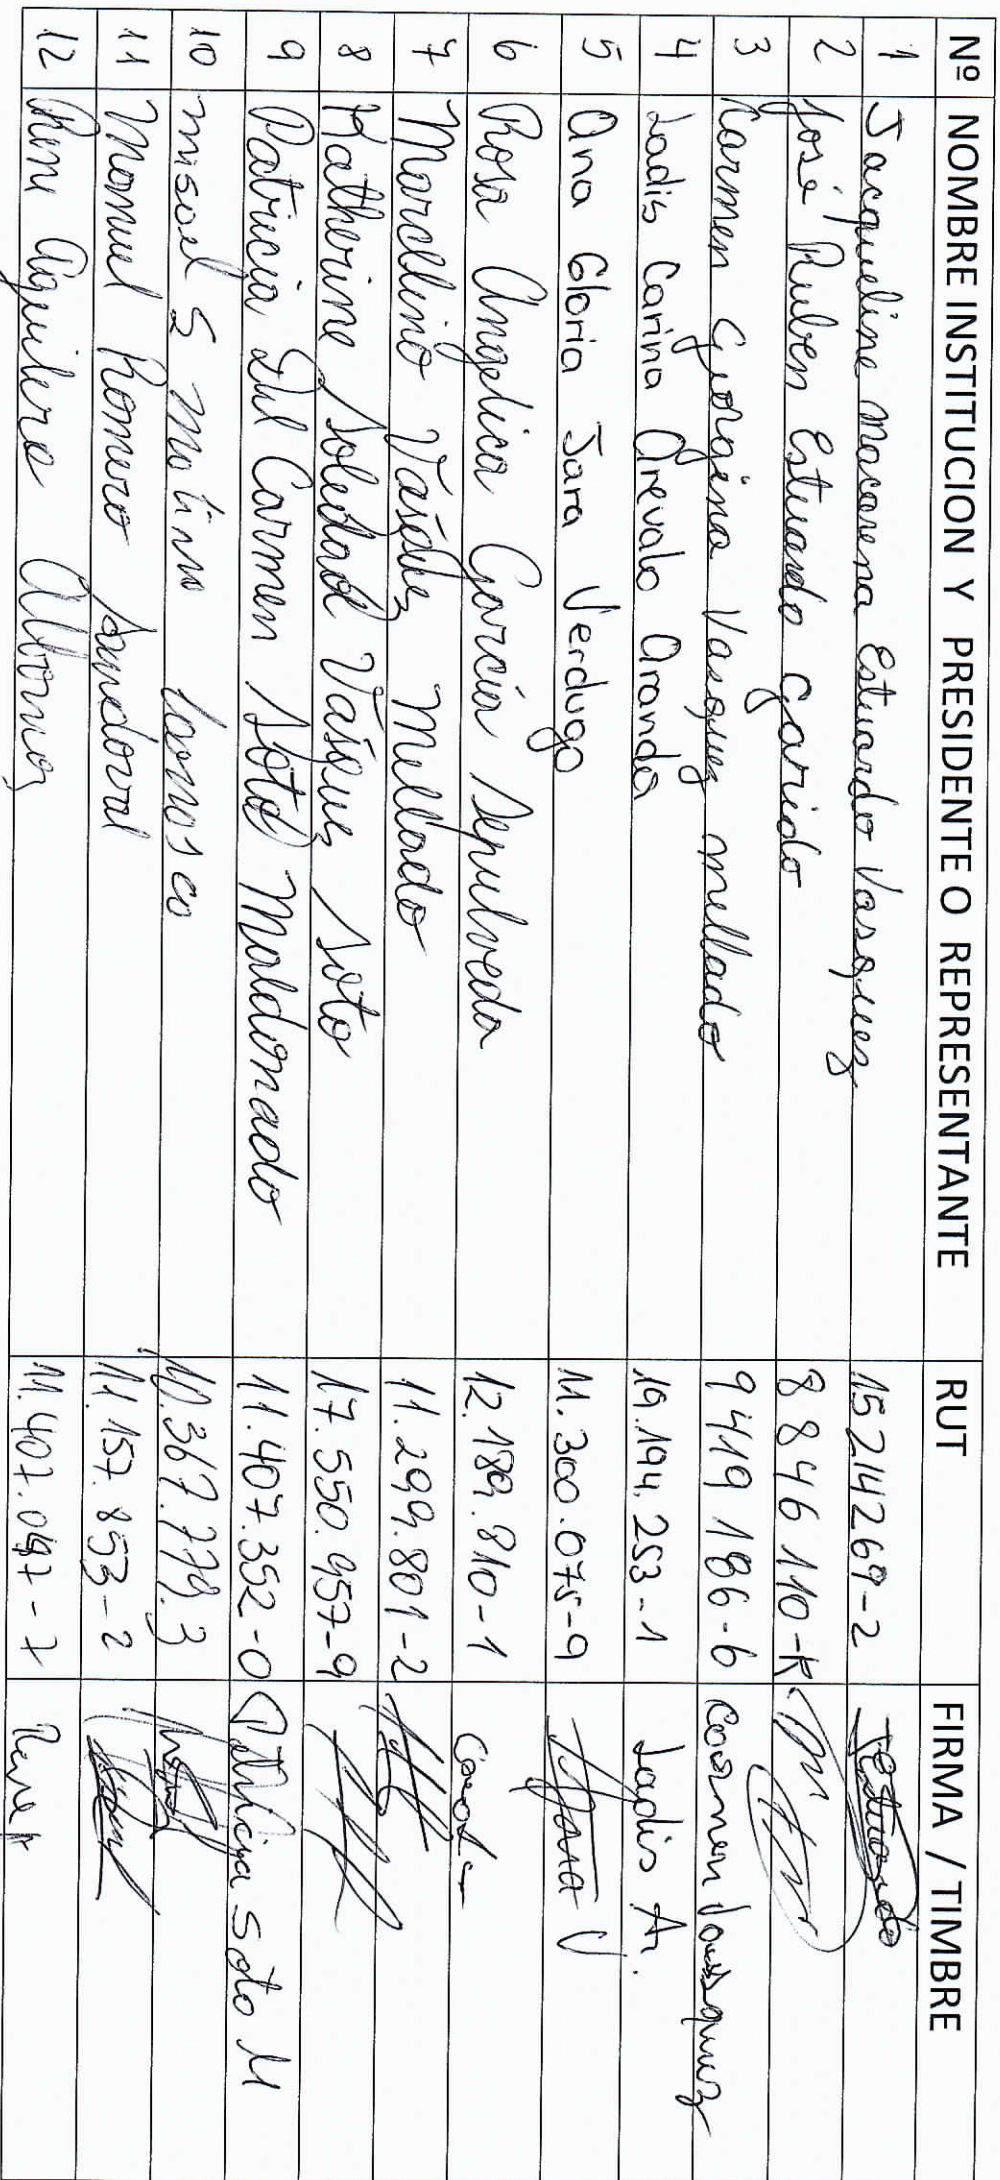 Nº NOMBRE INSTITUCION Y PRESIDENTE O REPRESENTANTE RUT FIRMA / TIMBRE
1 Jacqueline Macarena Estuardo Vasquez 15 214269-2 JEstuardo
2 José Ruben Estuardo Garido 8 846 110-K
3 Carmen Georgina Vasquez mellado 9 419 186-6 Carmen Vassquez
4 Ladis Carina Arevalo Aranda 19.194.253-1 Ladis A.
5 Ana Gloria Jara Verdugo 11.300.075-9 Jara V
6 Rosa Angelica García Sepulveda 12.189.810-1
7 Marcelino Vásquez Mellado 11.299.801-2
8 Katherine Soledad Vásquez Soto 17.550.957-9
9 Patricia Del Carmen Soto Maldonado 11.407.352-0 Patricia Soto M
10 misael S 10.367.779.3
11 Manuel Romero Sandoval 11.157.853-2
12 Aguilera Albornoz 11.407.047-7